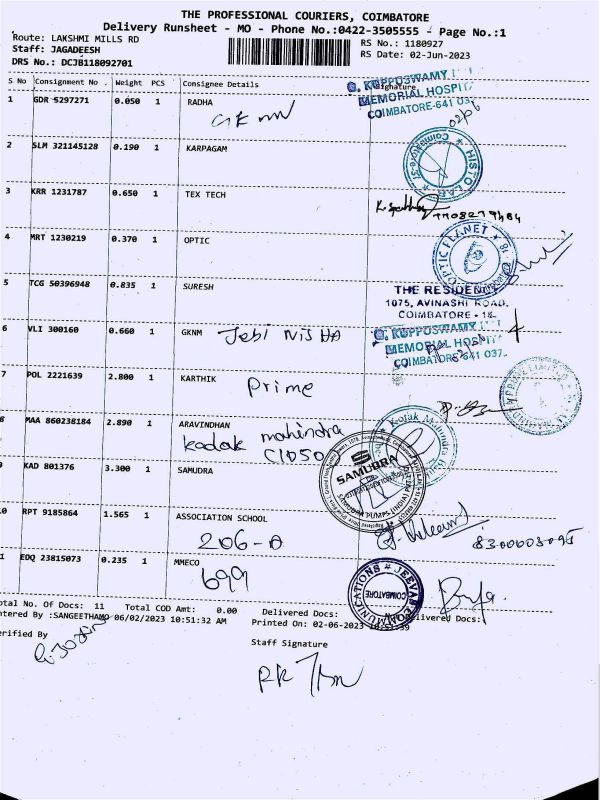 THE PROFESSIONAL COURIERS, COIMBATORE
Delivery Runsheet - MO - Phone No.:0422-3505555 - Page No.:1
Route: LAKSHMI MILLS RD
RS No.: 1180927
Staff: JAGADEESH
RS Date: 02-Jun-2023
DRS No.: DCJB118092701
S No Consignment No. Weight PCS Consignee Details Signature
1 GDR 5297271 0.050 1 RADHA
G. KUPPUSWAMY
MEMORIAL HOSPIT
COIMBATORE-641 037
02/6
2 SLM 321145128 0.190 1 KARPAGAM
HISTOLAB
3 KRR 1231787 0.650 1 TEX TECH
4 MRT 1230219 0.370 1 OPTIC
OPTIC PLANET
5 TCG 50396948 0.835 1 SURESH
THE RESIDENCY
1075, AVINASHI ROAD,
COIMBATORE - 18.
6 VLI 300160 0.660 1 GKNM Jebi NISHA
G. KUPPUSWAMY
MEMORIAL HOSPIT
COIMBATORE-641 037.
7 POL 2221639 2.800 1 KARTHIK
Prime
8 MAA 860238184 2.890 1 ARAVINDHAN
kodak mahindra
C1050
Kotak Mahindra Bank
9 KAD 801376 3.300 1 SAMUDRA
SAMUDRA
10 RPT 9185864 1.565 1 ASSOCIATION SCHOOL
206-A
8300003095
11 EDQ 23815073 0.235 1 MMECO
699
JEEVAS COMMUNICATIONS
COIMBATORE
Total No. Of Docs: 11 Total COD Amt: 0.00 Delivered Docs: Delivered Docs:
Entered By :SANGEETHAMO 06/02/2023 10:51:32 AM Printed On: 02-06-2023 10:51:39
Verified By
Staff Signature